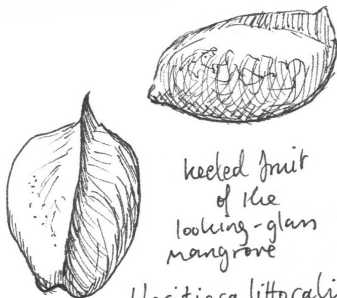 keeled fruit
of the
looking-glass
mangrove
Heritiera littorali